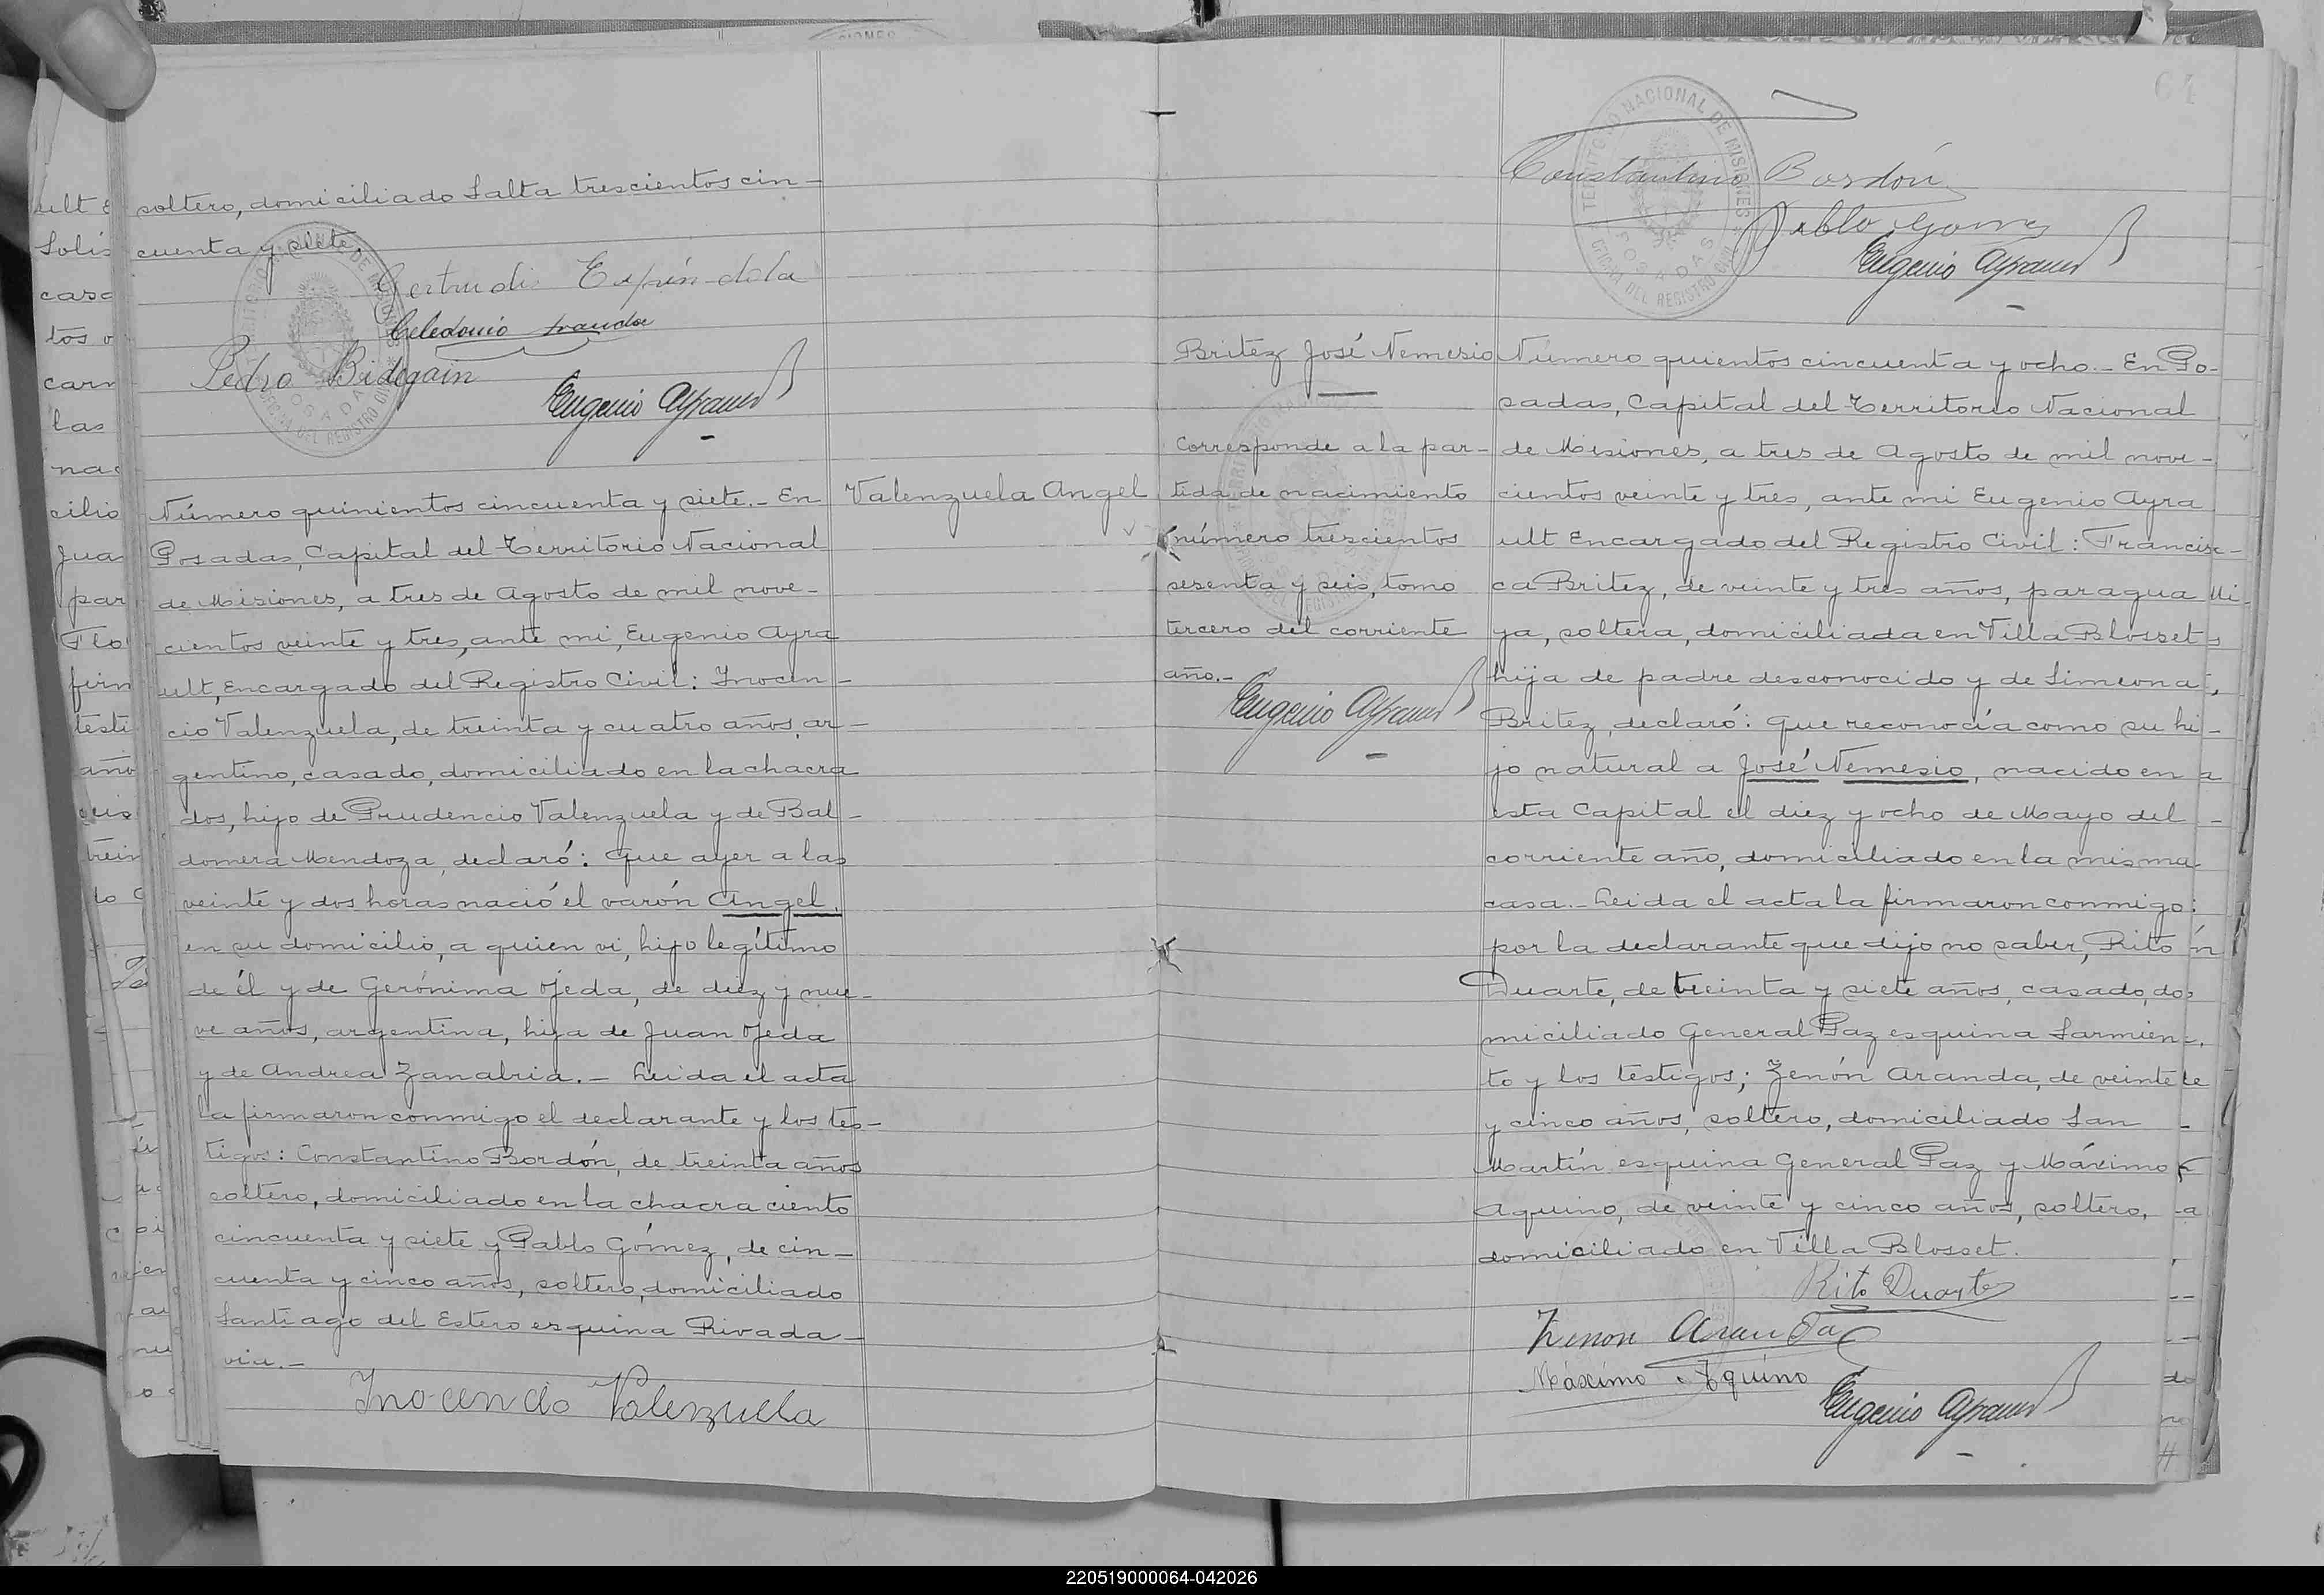 soltero, domiciliado Salta trescientos cin-
cuenta y siete.
Gertrudi Espíndola
Celedonio Aranda
Pedro Bidegain
Eugenio Ayrault
Número quinientos cincuenta y siete.- En
Posadas, Capital del Territorio Nacional
de Misiones, a tres de Agosto de mil nove-
cientos veinte y tres, ante mi, Eugenio Ayra
ult, Encargado del Registro Civil: Inocen-
cio Valenzuela, de treinta y cuatro años, ar-
gentino, casado, domiciliado en la chacra
dos, hijo de Prudencio Valenzuela y de Bal-
domera Mendoza, declaró: Que ayer a las
veinte y dos horas nació el varón Angel,
en su domicilio, a quien vi, hijo legítimo
de él y de Gerónima Ojeda, de diez y nue-
ve años, argentina, hija de Juan Ojeda
y de Andrea Zanabria.- Leida el acta
la firmaron conmigo el declarante y los tes-
tigos: Constantino Bordón, de treinta años
soltero, domiciliado en la chacra ciento
cincuenta y siete y Pablo Gómez, de cin-
cuenta y cinco años, soltero, domiciliado
Santiago del Estero esquina Rivada-
via.-
Inocencio Valenzuela
Valenzuela Angel
64
TERRITORIO NACIONAL DE MISIONES
POSADAS
OFICINA DEL REGISTRO CIVIL
Constantino Bordón
Pablo Gomez
Eugenio Ayrault
Britez José Nemesio
Corresponde a la par-
tida de nacimiento
número trescientos
sesenta y seis, tomo
tercero del corriente
año.-
Eugenio Ayrault
Número quientos cincuenta y ocho.- En Po-
sadas, Capital del Territorio Nacional
de Misiones, a tres de Agosto de mil nove-
cientos veinte y tres, ante mi Eugenio Ayra
ult Encargado del Registro Civil: Francis-
ca Britez, de veinte y tres años, paragua
ya, soltera, domiciliada en Villa Blosset
hija de padre desconocido y de Simeona
Britez, declaró: Que reconocía como su hi-
jo natural a José Nemesio, nacido en
esta Capital el diez y ocho de Mayo del
corriente año, domiciliado en la misma
casa.- Leida el acta la firmaron conmigo:
por la declarante que dijo no saber, Rito
Duarte, de treinta y siete años, casado, do-
miciliado General Paz esquina Sarmien-
to y los testigos; Zenón Aranda, de veinte
y cinco años, soltero, domiciliado San
Martín esquina General Paz y Máximo
Aquino, de veinte y cinco años, soltero,
domiciliado en Villa Blosset.
Rito Duarte
Zenon Aranda
Máximo Aquino
Eugenio Ayrault
220519000064-042026